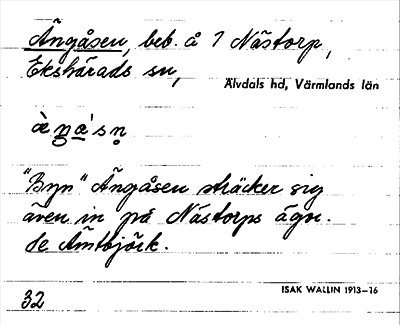 Ängåsen, beb. å 7 Nästorp,
Ekshärads sn,
Älvdals hd, Värmlands län
"Byn" Ängåsen sträcker sig
även in på Nästorps ägor.
Se Åmtbjörk.
ISAK WALLIN 1913-16
32